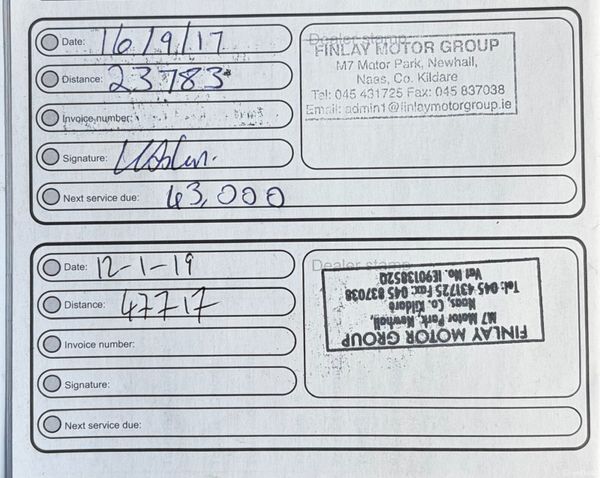 Date: 16/9/17
Distance: 23783
Invoice number:
Signature:
Next service due: 43,000
Dealer stamp
FINLAY MOTOR GROUP
M7 Motor Park, Newhall,
Naas, Co. Kildare
Tel: 045 431725 Fax: 045 837038
Email: admin1@finlaymotorgroup.ie
Date: 12-1-19
Distance: 47717
Invoice number:
Signature:
Next service due:
Dealer stamp
FINLAY MOTOR GROUP
M7 Motor Park, Newhall,
Naas, Co. Kildare
Tel: 045 431725 Fax: 045 837038
Vat No. IE9013852Q